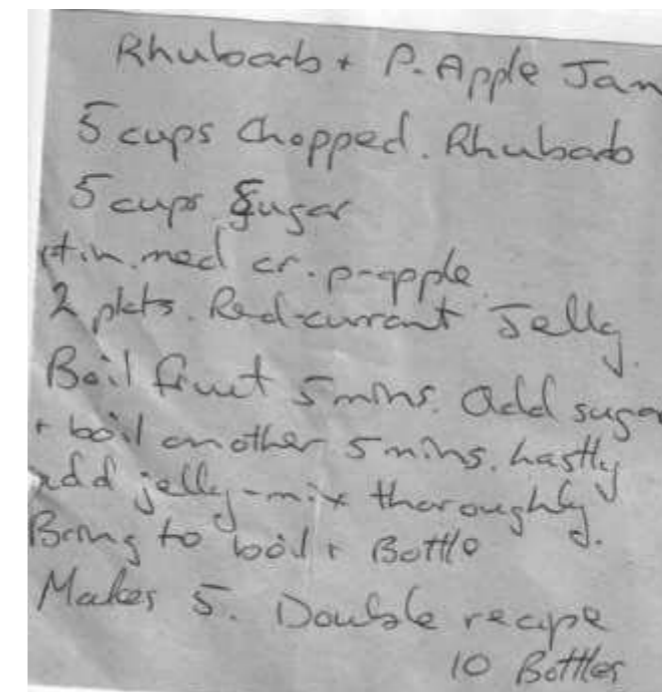 Rhubarb + P. Apple Jam
5 cups Chopped. Rhubarb
5 cups Sugar
1 tin. med cr. p-apple.
2 pkts. Red-currant Jelly.
Boil fruit 5 mins. Add sugar
+ boil another 5 mins. Lastly
add jelly - mix thoroughly.
Bring to boil + Bottle
Makes 5. Double recipe
10 Bottles